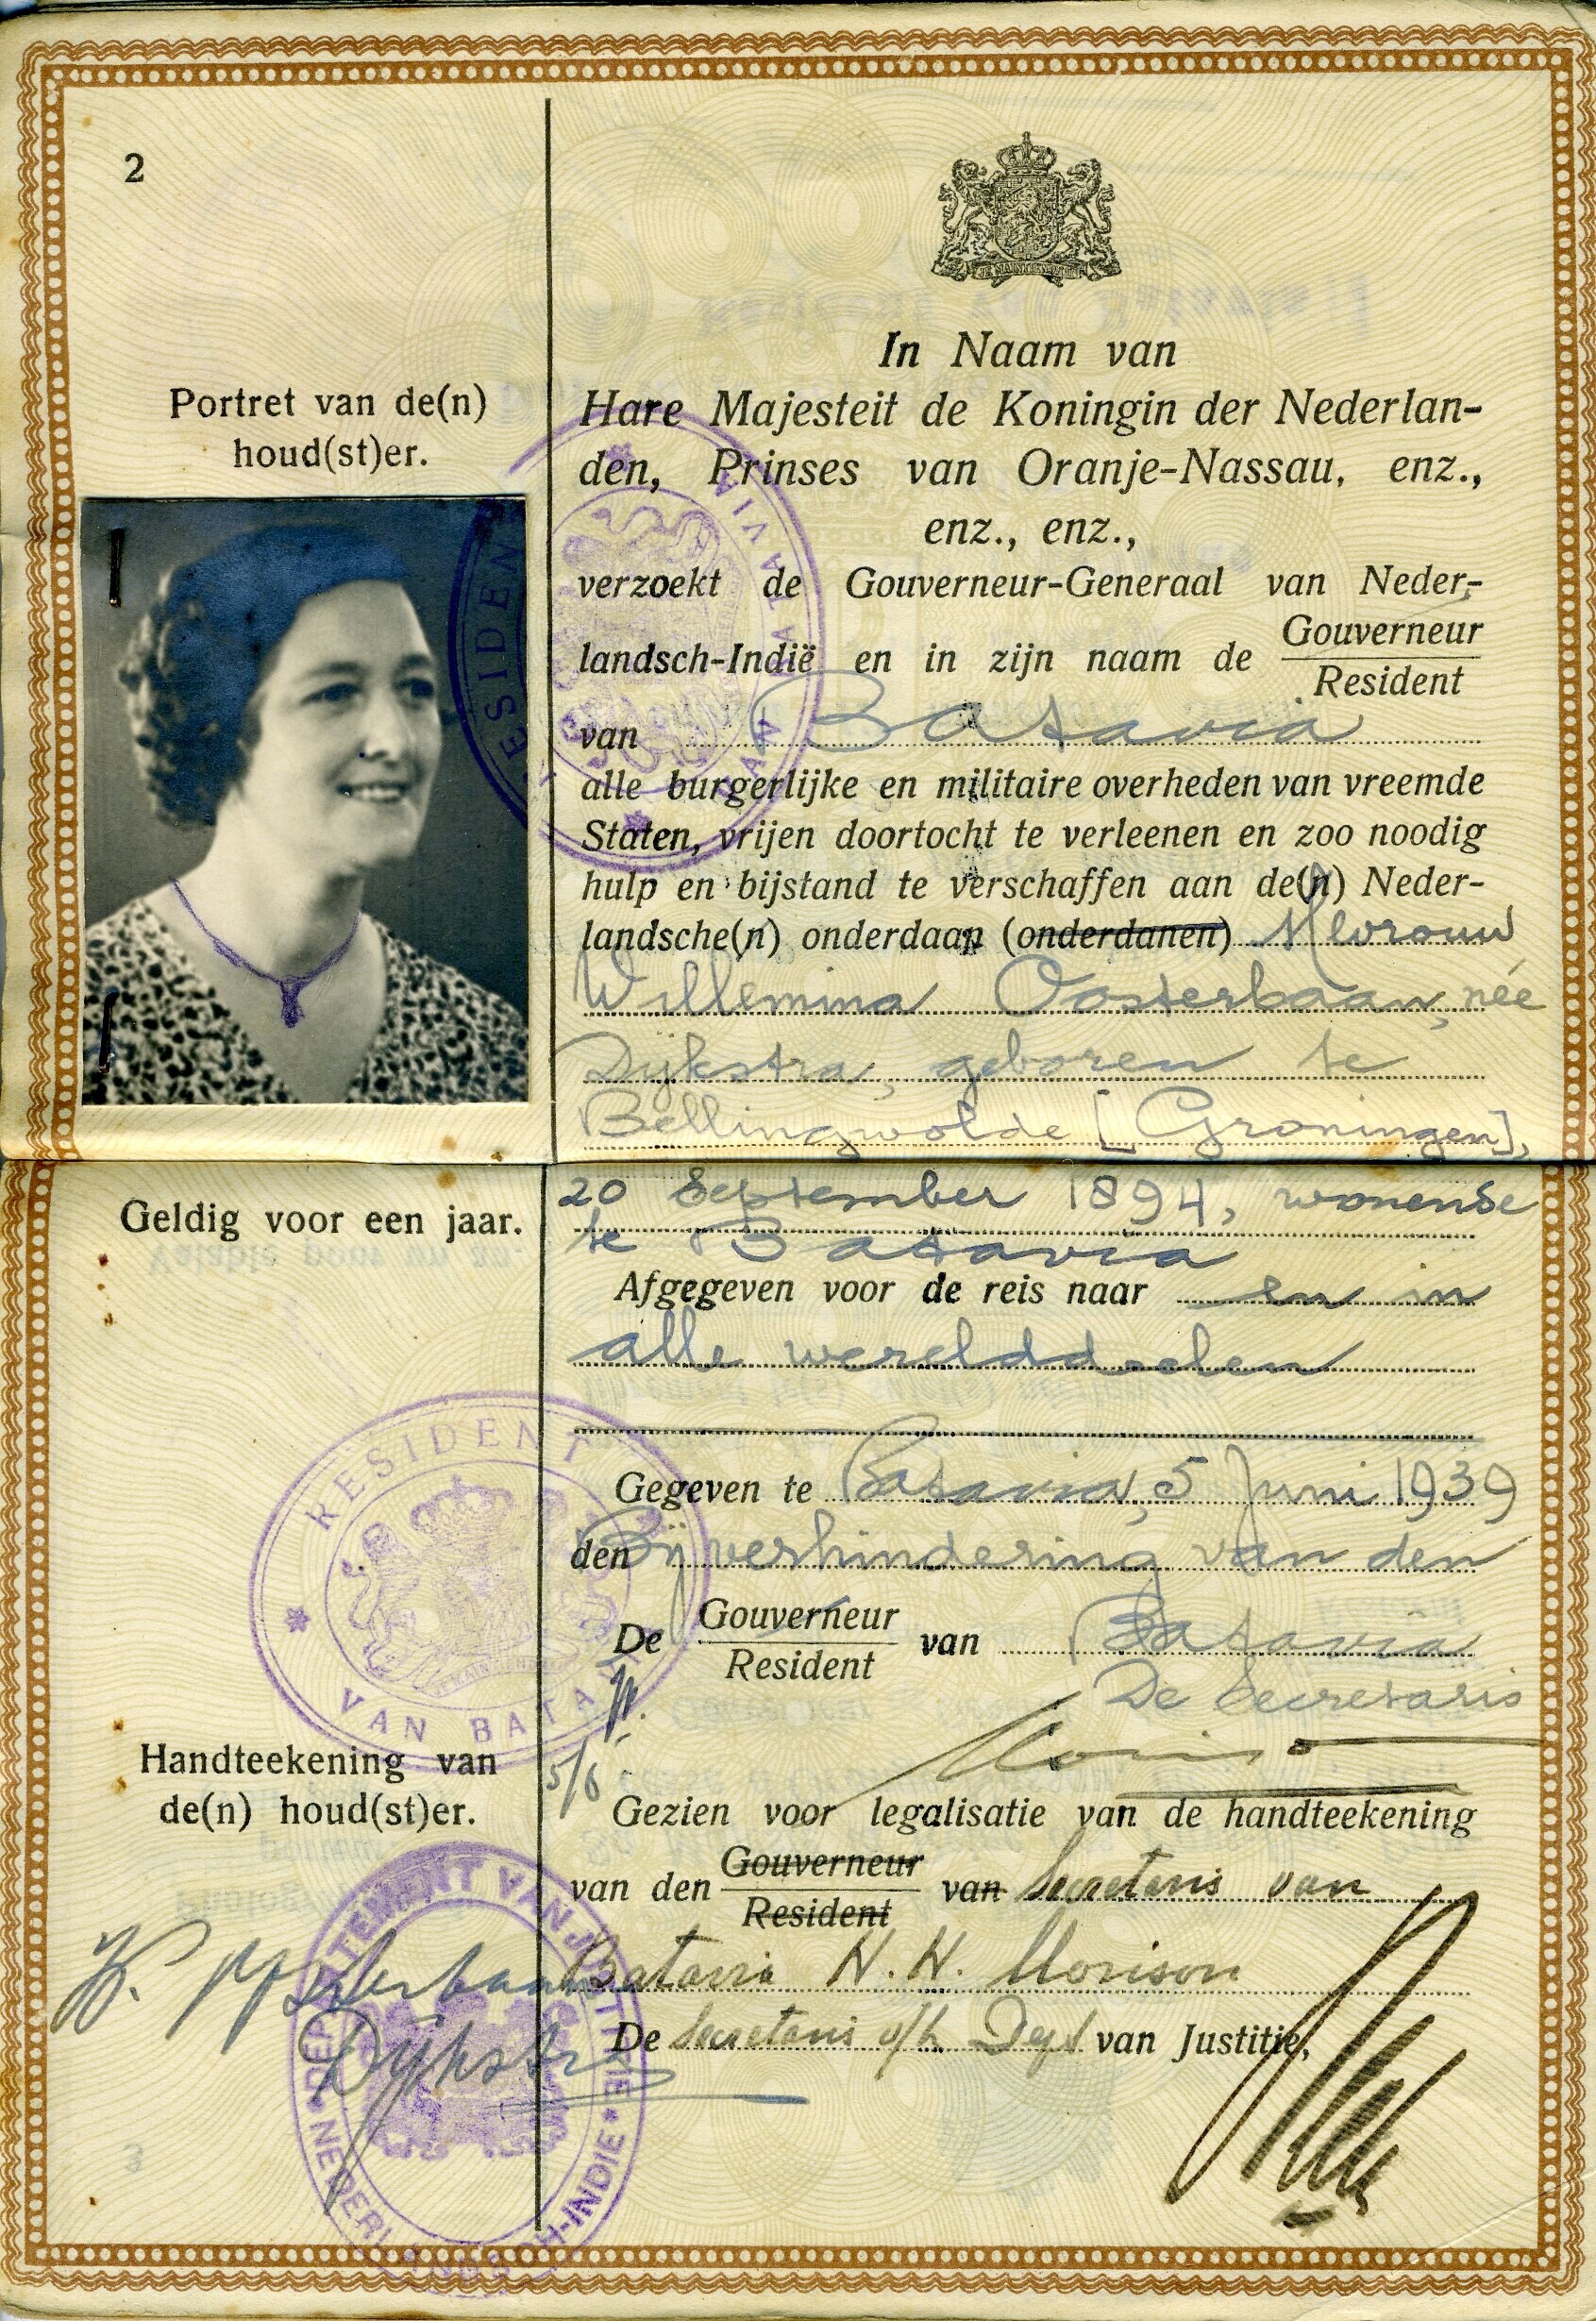 2
Portret van de(n)
houd(st)er.
In Naam van
Hare Majesteit de Koningin der Nederlan-
den, Prinses van Oranje-Nassau, enz.,
enz., enz.,
verzoekt de Gouverneur-Generaal van Neder-
landsch-Indië en in zijn naam de Gouverneur
Resident
van Batavia
alle burgerlijke en militaire overheden van vreemde
Staten, vrijen doortocht te verleenen en zoo noodig
hulp en bijstand te verschaffen aan de(n) Neder-
landsche(n) onderdaan (onderdanen) Mevrouw
Willemina Oosterbaan, née
Dijkstra, geboren te
Bellingwolde [Groningen],
Geldig voor een jaar.
20 September 1894, wonende
te Batavia
Afgegeven voor de reis naar en in
alle werelddeelen
Gegeven te Batavia, 5 Juni 1939
den Bij verhindering van den
De Gouverneur van Batavia
Resident
De Secretaris
5/6
Handteekening van
de(n) houd(st)er.
Gezien voor legalisatie van de handteekening
van den Gouverneur van Secretaris van
Resident
Batavia H. H. Morison
De Secretaris v/h Dept van Justitie,
W. Oosterbaan
Dijkstra
RESIDENT VAN BATAVIA
RESIDENT VAN BATAVIA
DEPARTEMENT VAN JUSTITIE NEDERLANDSCH-INDIE